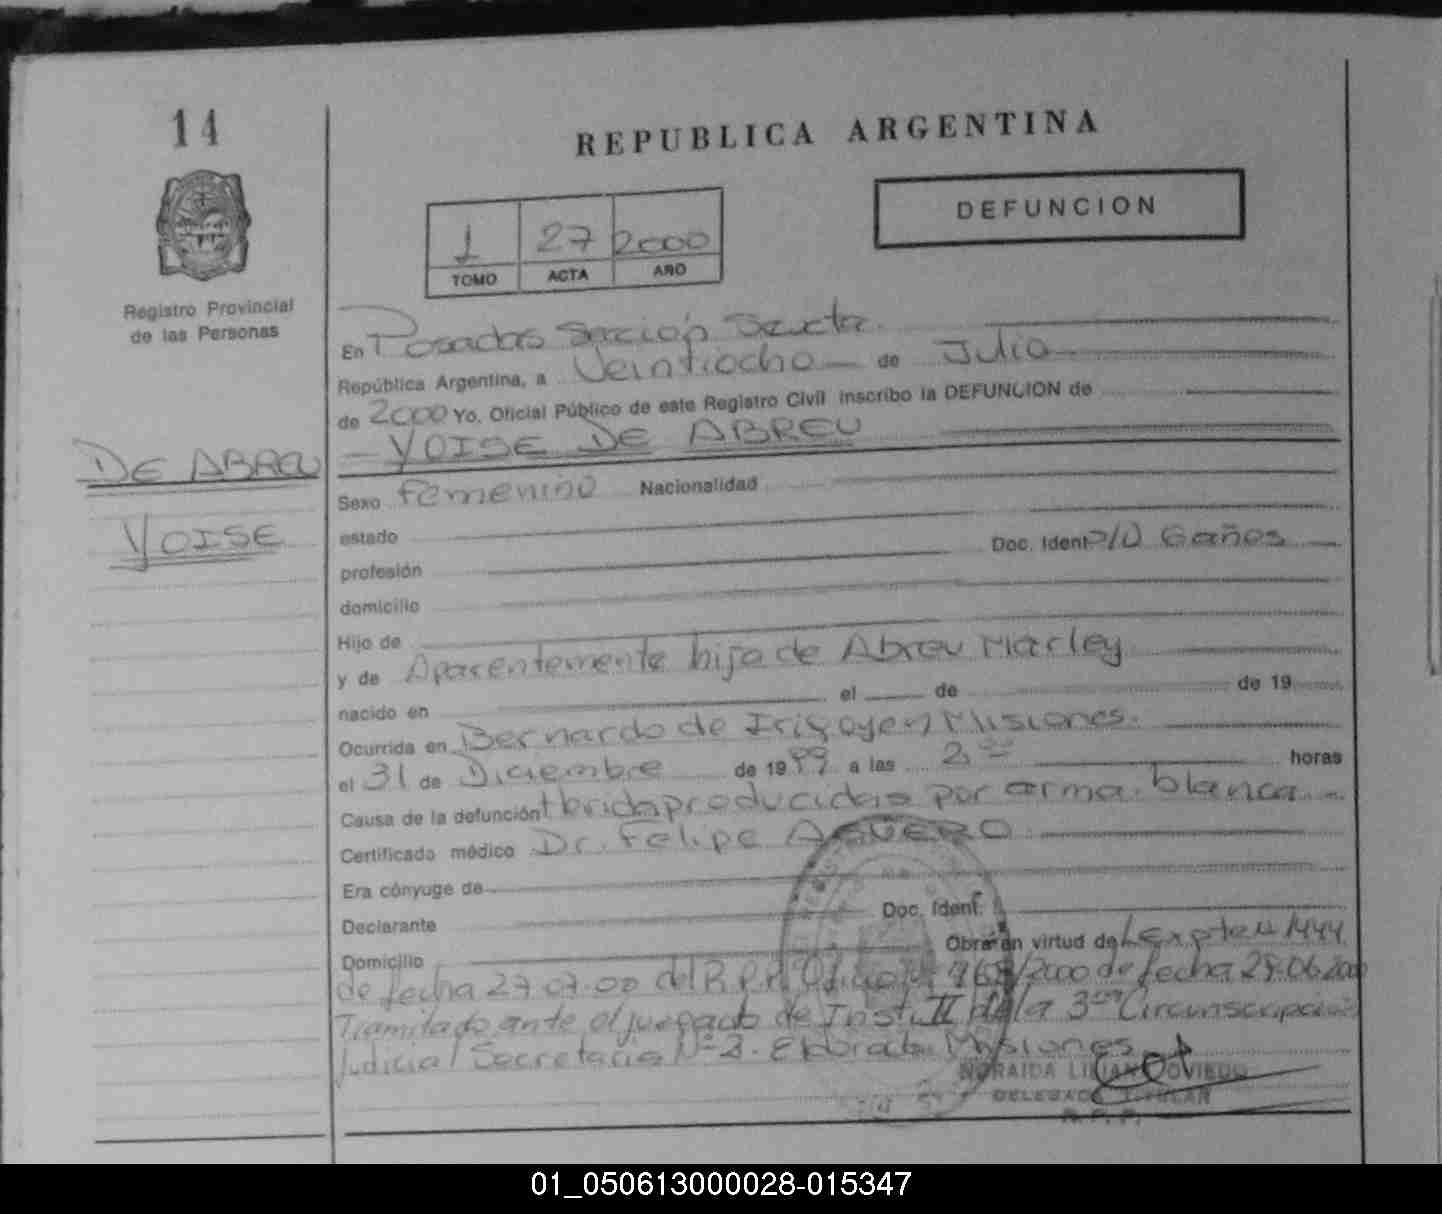 14
REPUBLICA ARGENTINA
DEFUNCION
1 27 2000
TOMO ACTA AÑO
Registro Provincial
de las Personas
En Posadas Sección Sexta
República Argentina, a Veintiocho de Julio
de 2000 Yo, Oficial Público de este Registro Civil inscribo la DEFUNCION de
YOISE DE ABREU
DE ABREU
YOISE
Sexo Femenino Nacionalidad
estado
Doc. Ident. 6 años
profesión
domicilio
Hijo de
y de Aparentemente hija de Abreu Marley
nacido en el de de 19
Ocurrida en Bernardo de Irigoyen Misiones.
el 31 de Diciembre de 1999 a las horas
Causa de la defunción producidas por arma blanca
Certificado médico Dr. Felipe AGÜERO
Era cónyuge de
Declarante Doc. Ident.
Domicilio Obrar en virtud de 1444
de fecha 27.07.00 del R.P.P. /2000 de fecha
Tramitado ante el juzgado de Inst. II de la 3ra Circunscripción
Judicial Secretaria Misiones
LILIAN OVIEDO
DELEGADA TITULAR
R.P.P.
01_050613000028-015347